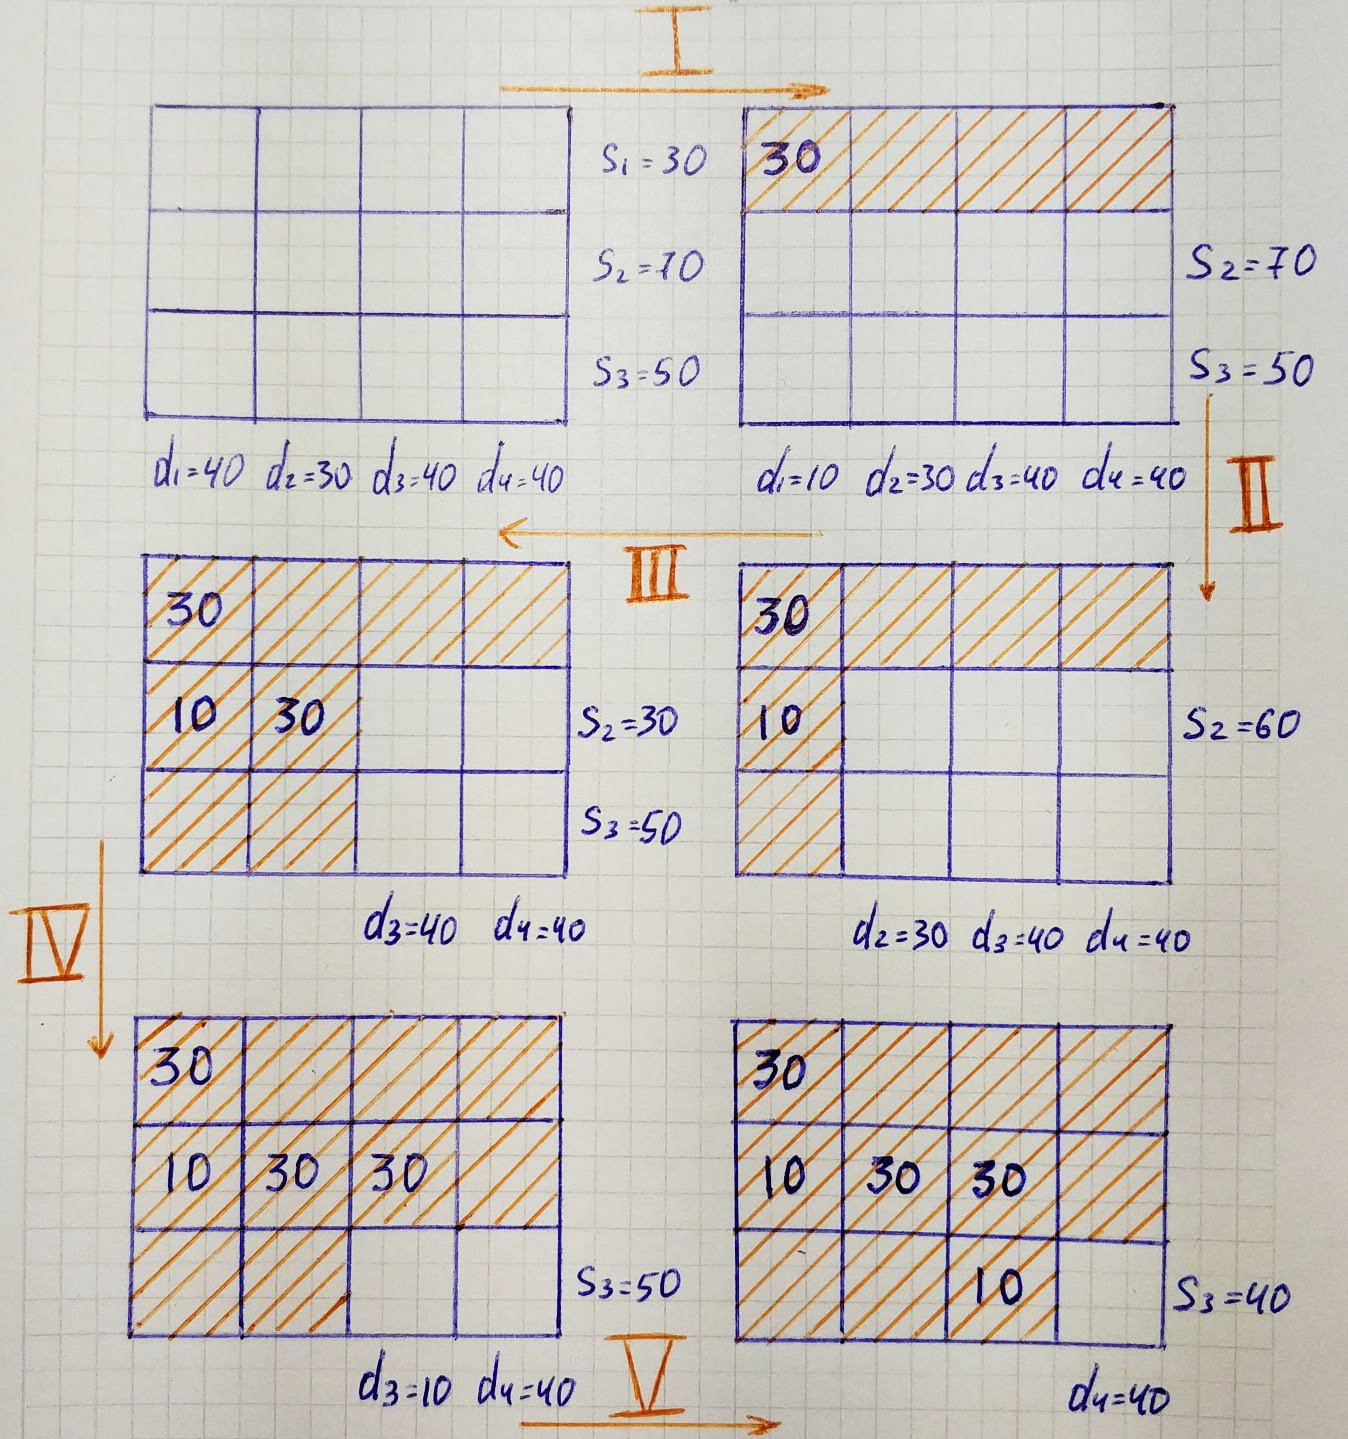 I
S1=30
S2=70
S3=50
d1=40 d2=30 d3=40 d4=40
30
S2=70
S3=50
d1=10 d2=30 d3=40 d4=40
II
III
30
10 30 S2=30
S3=50
d3=40 d4=40
30
10 S2=60
d2=30 d3=40 d4=40
IV
30
10 30 30
S3=50
d3=10 d4=40
V
30
10 30 30
10 S3=40
d4=40